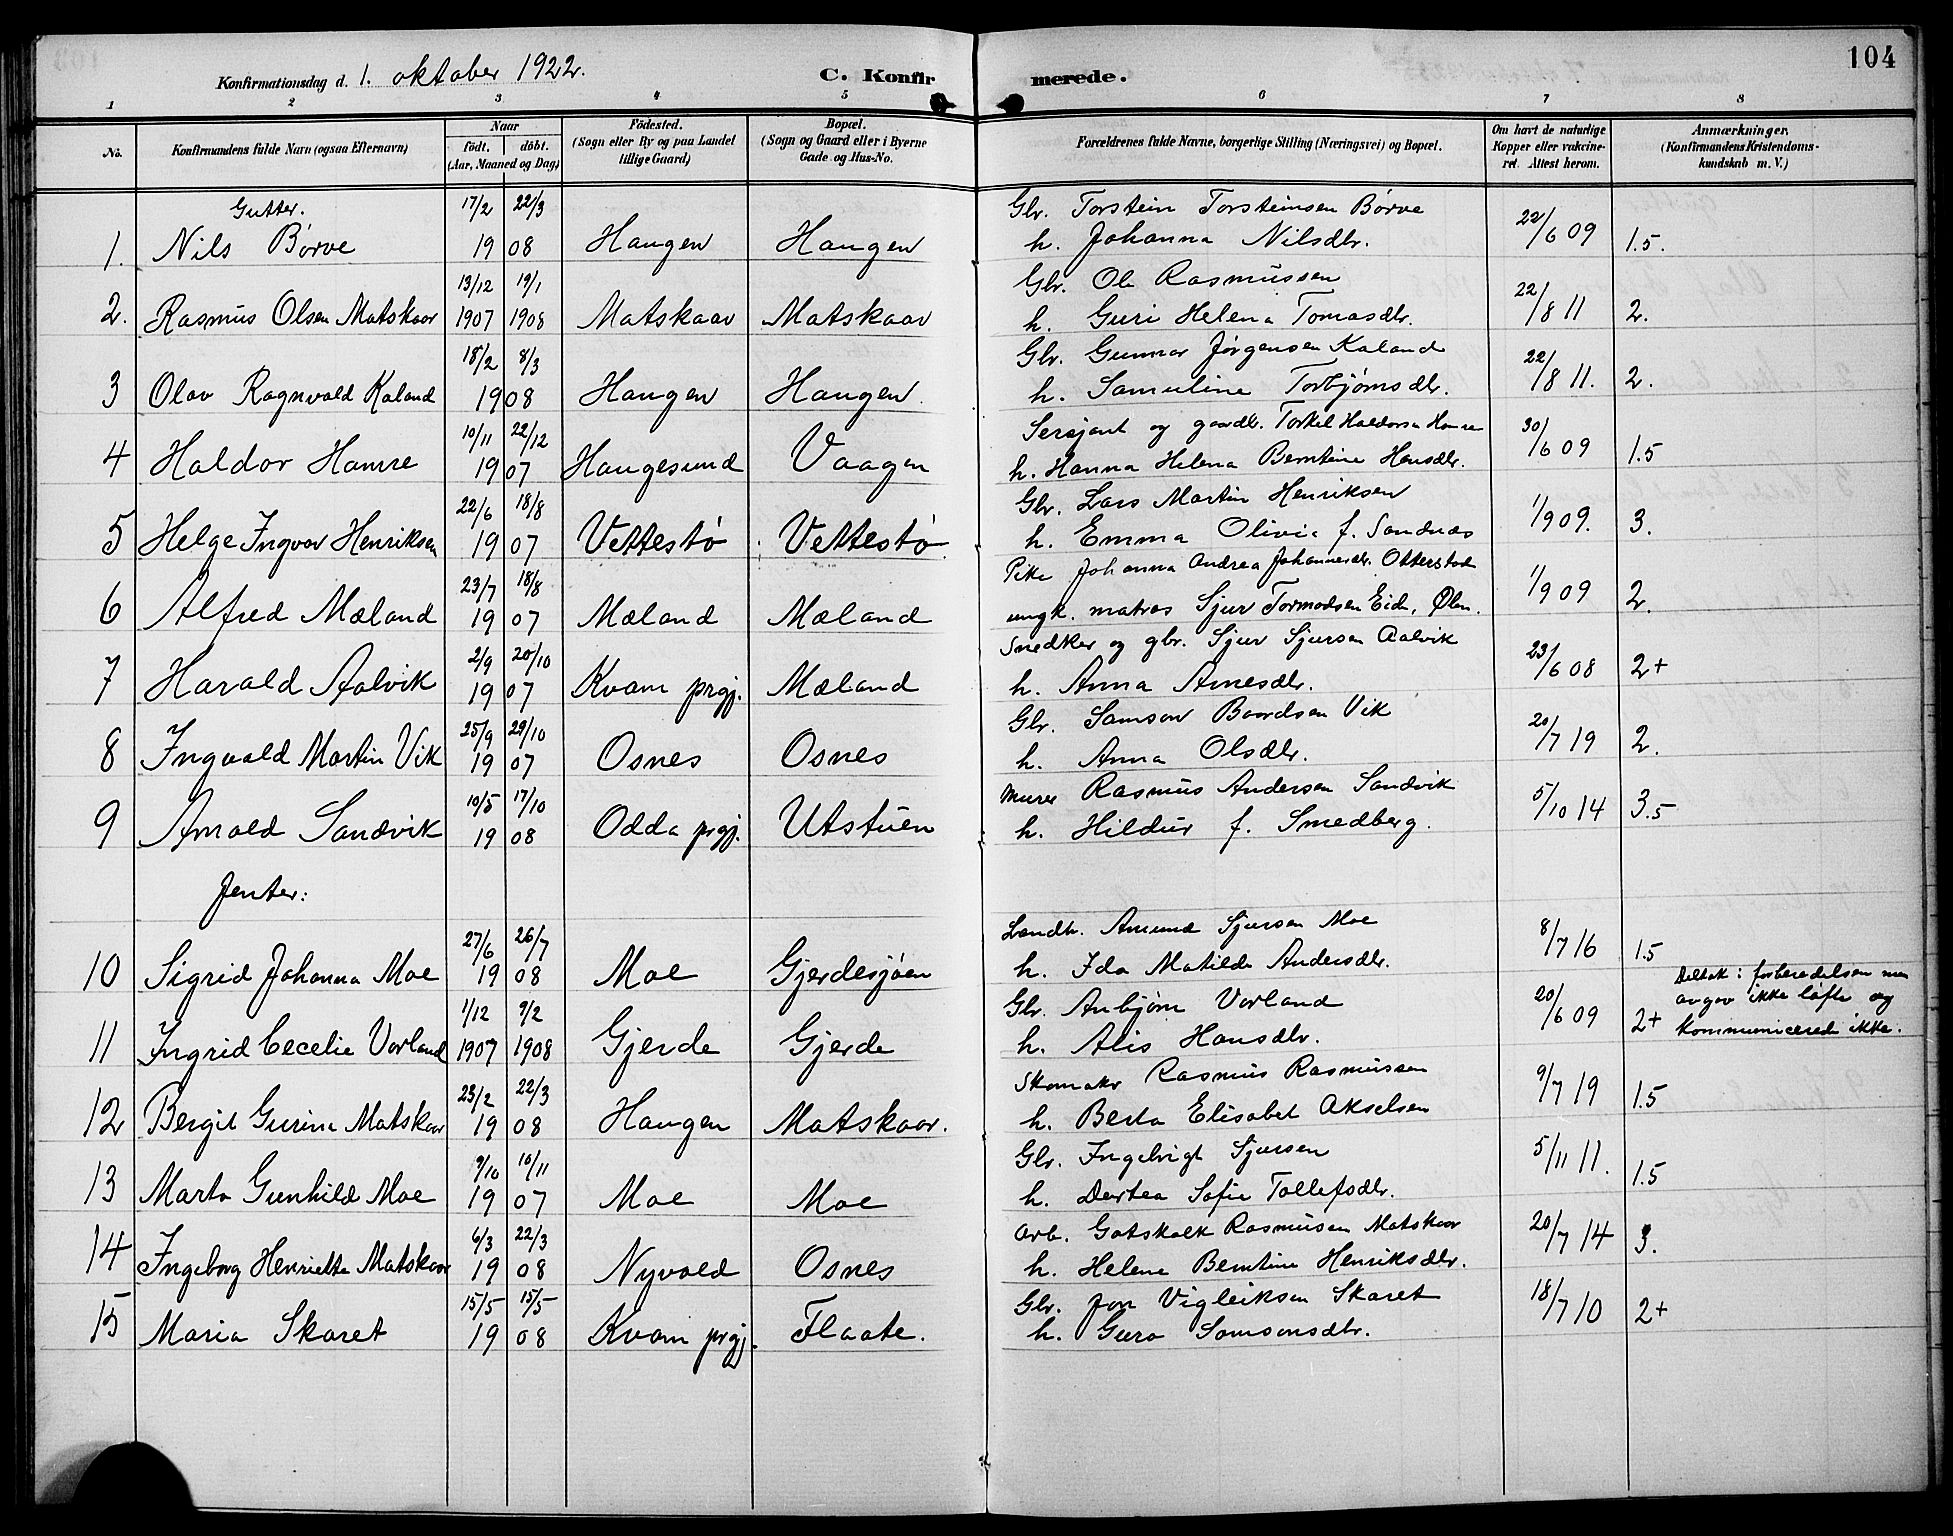 104
Konfirmationsdag d. 1. oktober 1922.
C. Konfirmerede.
1 2 3 4 5 6 7 8
No.
Konfirmandens fulde Navn (ogsaa Efternavn)
Naar
født. døbt.
(Aar, Maaned og Dag)
Födested.
(Sogn eller By og paa Landet
tillige Gaard)
Bopæl.
(Sogn og Gaard eller i Byerne
Gade og Hus-No.
Forældrenes fulde Navne, borgerlige Stilling (Næringsvei) og Bopæl.
Om havt de naturlige
Kopper eller vakcine-
ret. Attest herom.
Anmærkninger.
(Konfirmandens Kristendoms-
kundskab m. V.)
Gutter. 17/2 22/3 Gbr. Torstein Torsteinsen Børve
1. Nils Børve 19 08 Haugen Haugen h. Johanna Nilsdtr. 22/6 09 1.5.
13/12 19/1 Gbr. Ole Rasmussen
2. Rasmus Olsen Matskaar 1907 1908 Matskaar Matskaar h. Guri Helena Tomasdtr. 22/8 11 2.
18/2 8/3 Gbr. Gunnar Jørgensen Kaland
3 Olav Ragnvald Kaland 19 08 Haugen Haugen. h. Samuline Torbjørnsdtr. 22/8 11. 2.
10/11 22/12 Sersjant og gaardbr. Torkel Haldorsen Hamre
4 Haldor Hamre 19 07 Haugesund Vaagen h. Hanna Helena Berntine Hansdtr. 30/6 09 1.5
22/6 18/8 Gbr. Lars Martin Henriksen
5 Helge Ingvar Henriksen 19 07 Vettestø Vettestø h. Emma Olivia f. Sandnæs 1/9 09. 3.
23/7 18/8 Pike Johanna Andrea Johannesdtr. Otterstad
6 Alfred Mæland 19 07 Mæland Mæland ungk. matros Sjur Tormodsen Eide, Ølen. 1/9 09 2.
2/9 20/10 Snedker og gbr. Sjur Sjursen Aalvik
7 Harald Aalvik 19 07 Kvam prgj. Mæland h. Anna Arnesdtr. 23/6 08 2+
25/9 29/10 Gbr. Samson Baardsen Vik
8 Ingvald Martin Vik 19 07 Osnes Osnes h. Anna Olsdtr. 20/7 19 2.
10/5 17/10 Murer Rasmus Andersen Sandvik
9 Arnold Sandvik 19 08 Odda prgj. Utstuen h. Hildur f. Smedberg. 5/10 14 3.5
Jenter:
27/6 26/7 Landh. Amund Sjursen Moe
10 Sigrid Johanna Moe 19 08 Moe Gjerdesjøen h. Ida Matilde Andersdtr. 8/7 16 1.5
1/12 9/2 Gbr. Anbjørn Vorland
11 Ingrid Cecelie Vorland 1907 1908 Gjerde Gjerde h. Alis Hansdtr. 20/6 09 2+ Deltok i forberedelsen men
avgav ikke løfte og
kommunicerede ikke.
23/2 22/3 Skomaker Rasmus Rasmussen
12 Bergit Gurina Matskaar 19 08 Haugen Matskaar. h. Berta Elisabet Akselsen 9/7 19 1.5
9/10 10/11 Gbr. Ingebrigt Sjursen
13 Marta Gunhild Moe 19 07 Moe Moe h. Dortea Sofie Tollefsdtr. 5/11 11. 1.5
6/3 22/3 Arb. Gotskalk Rasmusen Matskaar
14 Ingeborg Henriette Matskaar 19 08 Nyvold Osnes h. Helene Berntine Henriksdtr. 20/7 14 3.
15/5 15/5 Gbr. Jon Vigleiksen Skaret
15 Maria Skaret 19 08 Kvam prgj. Flaate. h. Guro Samsonsdtr. 18/7 10 2+